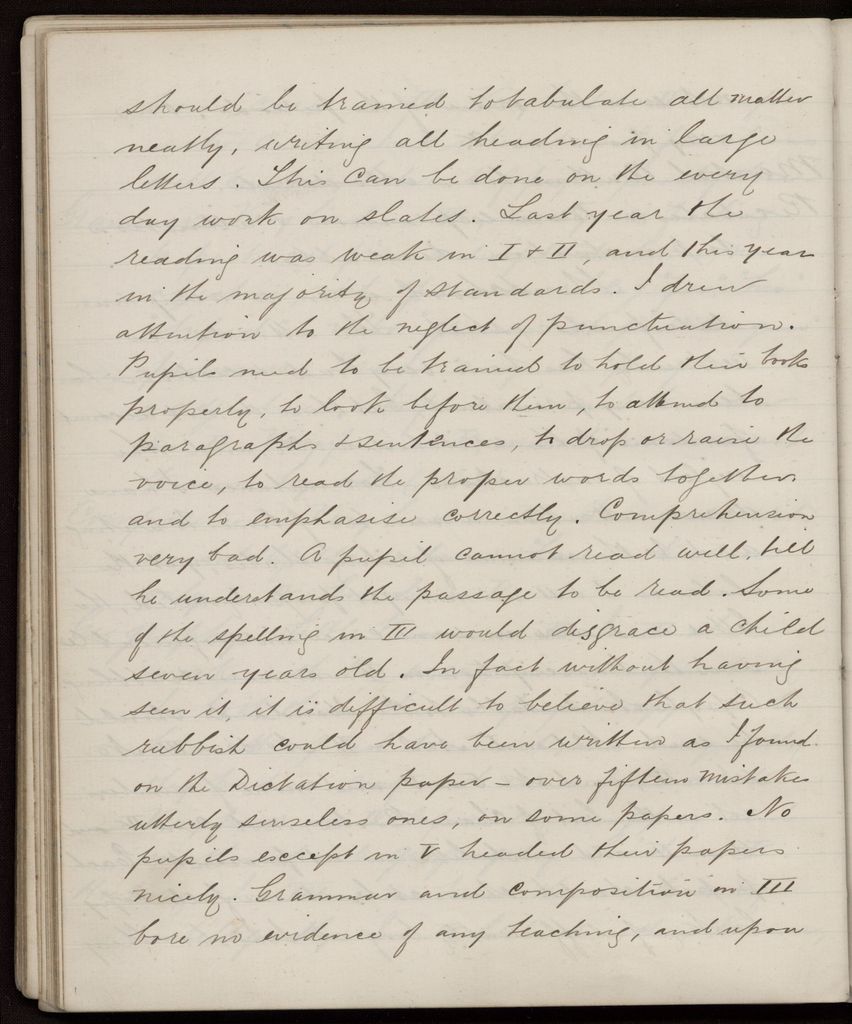 should be trained to tabulate all matter
neatly, writing all heading in large
letters. This can be done on the every
day work on slates. Last year the
reading was weak in I & II, and this year
in the majority of standards. I drew
attention to the neglect of punctuation.
Pupils need to be trained to hold their books
properly, to look before them, to attend to
paragraphs & sentences, to drop or raise the
voice, to read the proper words together
and to emphasise correctly. Comprehension
very bad. A pupil cannot read well, till
he understands the passage to be read. Some
of the spelling in III would disgrace a child
seven years old. In fact without having
seen it, it is difficult to believe that such
rubbish could have been written as I found
on the Dictation paper - over fifteen mistakes
utterly senseless ones, on some papers. No
pupils except in V headed their papers
nicely. Grammar and composition in III
bore no evidence of any teaching, and upon